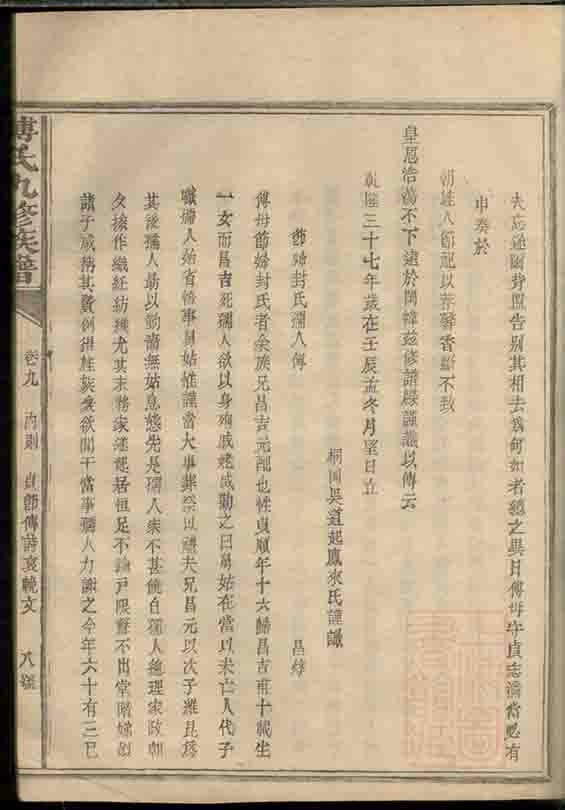 夫忘逝圖背照告別其相去為何如者總之異日傅母守貞志滿當必有
申奏於
朝旌人節配以荐馨香斷不致
皇恩浩蕩不下逮於閨幃茲修譜綴謹識以傳云
乾隆三十七年歲在壬辰孟冬月望日立
桐圃吳道起鳳來氏謹識
節婦封氏孺人傳
昌緯
傅母節婦封氏者余族兄昌吉元配也性貞順年十六歸昌吉甫十載生
一女而昌吉死孺人欲以身殉戚姥咸勸之曰舅姑在當以未亡人代子
職孺人始省悟事舅姑惟謹當大事葬祭以禮夫兄昌元以次子維昆為
其後孺人勗以勤嗇無姑息態先是孺人衆不甚饒自孺人總理家政朝
夕操作織紝紡績尤其末務家遂起居恒足不踰戶限聲不出堂階娣姒
諸子咸稱其賢例得旌族衆欲聞于當事孺人力謝之今年六十有三已
傅氏九修族譜
卷九
內則
貞節傳詩哀輓文
八